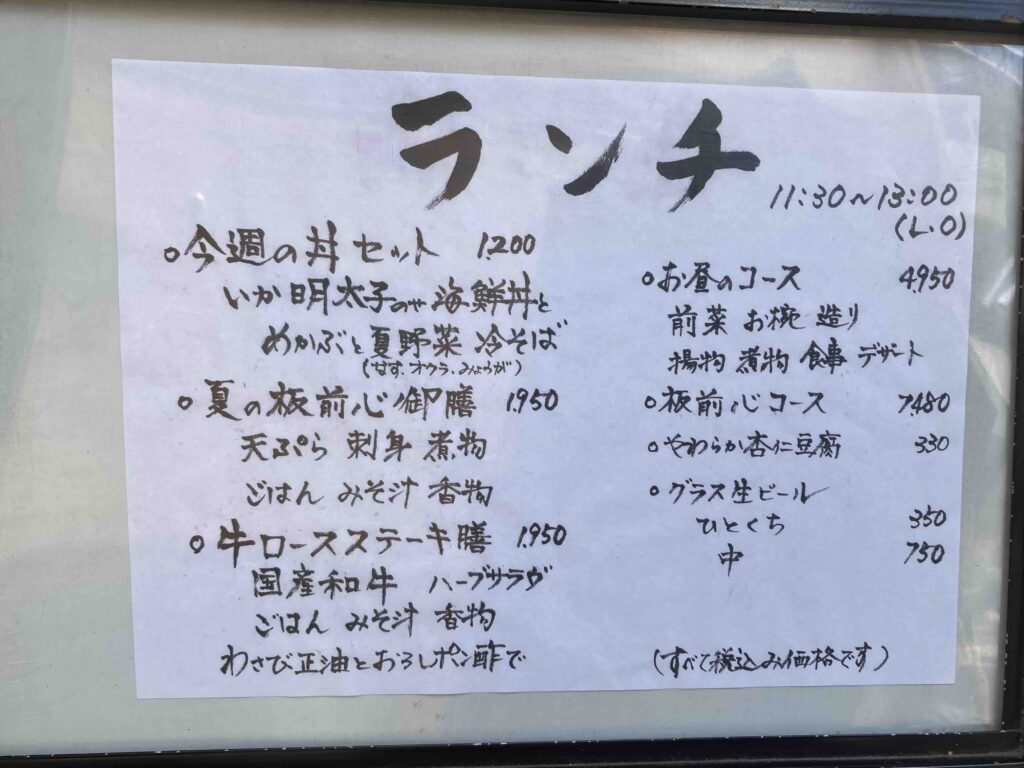 ランチ
11:30～13:00
(L.O)
○今週の丼セット 1,200
いか明太子のせ海鮮丼と
めかぶと夏野菜冷そば
(なす、オクラ、みょうが)
○夏の板前心御膳 1,950
天ぷら 刺身 煮物
ごはん みそ汁 香物
○牛ロースステーキ膳 1,950
国産和牛 ハーブサラダ
ごはん みそ汁 香物
わさび正油とおろしポン酢で
○お昼のコース 4,950
前菜 お椀 造り
揚物 煮物 食事 デザート
○板前心コース 7,480
○やわらか杏仁豆腐 330
○グラス生ビール
ひとくち 350
中 750
(すべて税込み価格です)